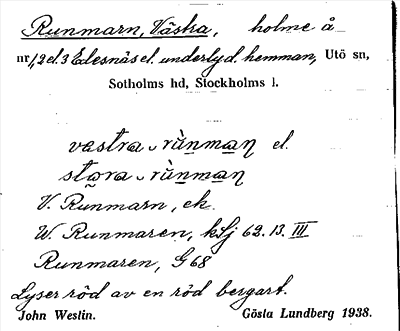 Runmarn, Västra, holme å
nr 1, 2 el. 3 Edesnäs el. underlyd. hemman, Utö sn,
Sotholms hd, Stockholms l.
vastra ᴗ rùnman el.
stọra ᴗ rùnman
V. Runmarn, ek.
W. Runmaren, kSj 62. 13. III
Runmaren, G 68
Lyser röd av en röd bergart.
John Westin. Gösta Lundberg 1938.